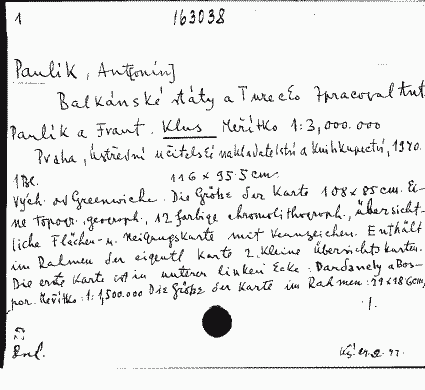 1 163038
Paulík, Ant[onín]
Balkánské státy a Turecko Zpracoval Ant.
Paulík a Frant. Klus Meřítko 1:3,000.000
Praha, ústřední učitelské nakladatelství a knihkupectví, 1940.
1 Bl. 116 x 95.5 cm.
Vých. od Greenwiche. Die Größe der Karte 108 x 85 cm. Ei-
ne topogr., geograph., 12 farbige chromolithograph., übersicht-
liche Flächen- u. Neigungskarte mit Kennzeichen. Enthält
im Rahmen der eigentl Karte 2 Kleine Übersichtskarten.
Die erste Karte ist in unterer linken Ecke: Dardanely a Bos-
por. Meřítko: 1:1,500.000 Die Größe der Karte im Rahmen: 29 x 18 6cm,